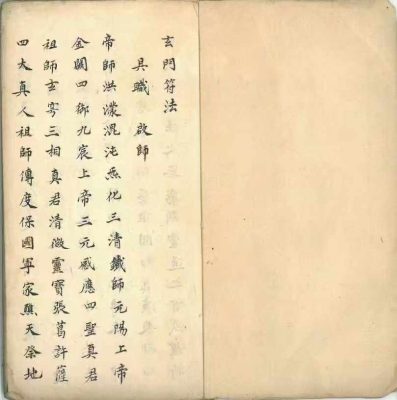 玄門符法
具職 啟師
帝師洪濛混沌無化三清鐵師元陽上帝
金闕四御九宸上帝三元感應四聖真君
祖師玄穹三相真君清微靈寶張葛許薩
四大真人祖師傳度保國寧家醮天祭地